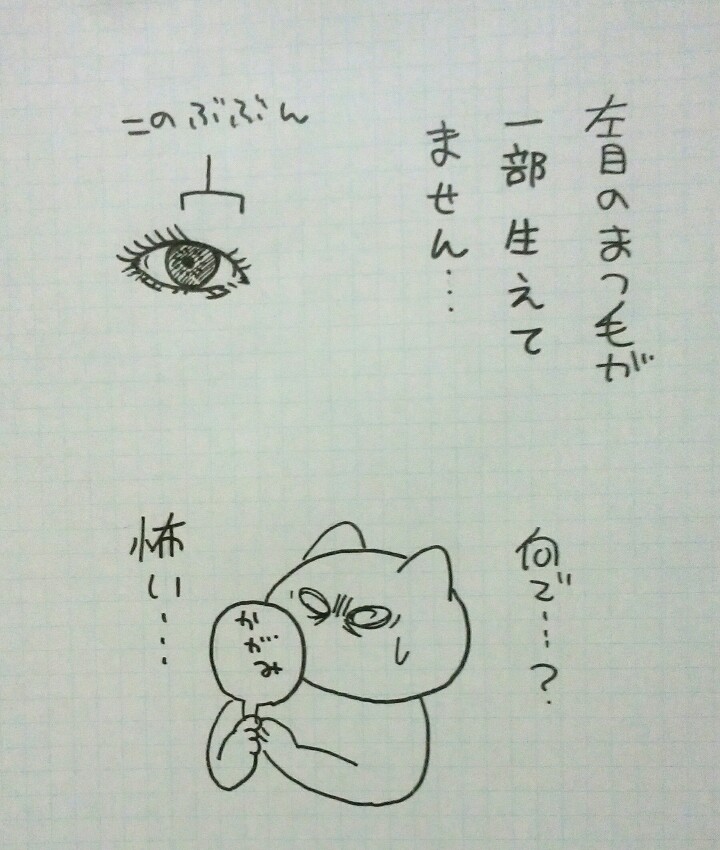 左目のまつ毛が
一部生えて
ません…
このぶぶん
何で…?
かがみ
怖い…